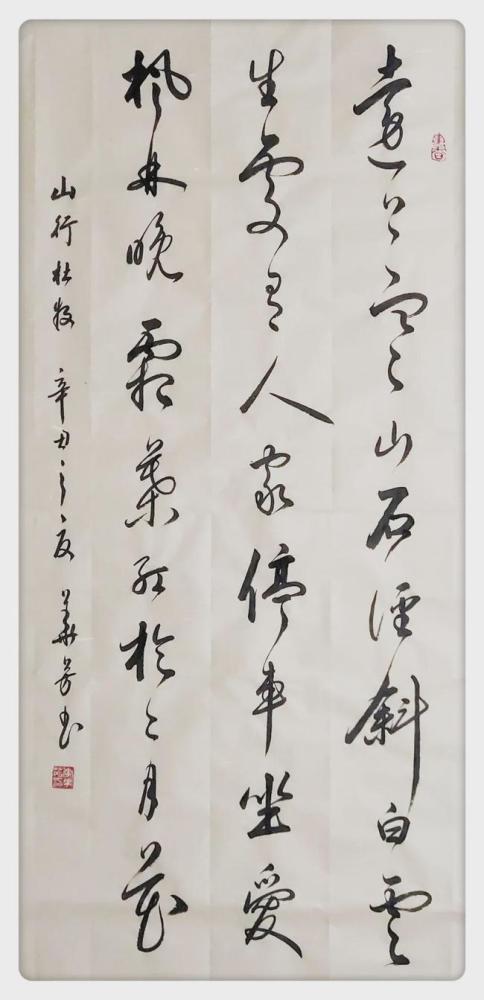 遠上寒山石徑斜白雲
生處有人家停車坐愛
楓林晚霜葉紅於二月花
山行杜牧 辛丑之夏 芳书